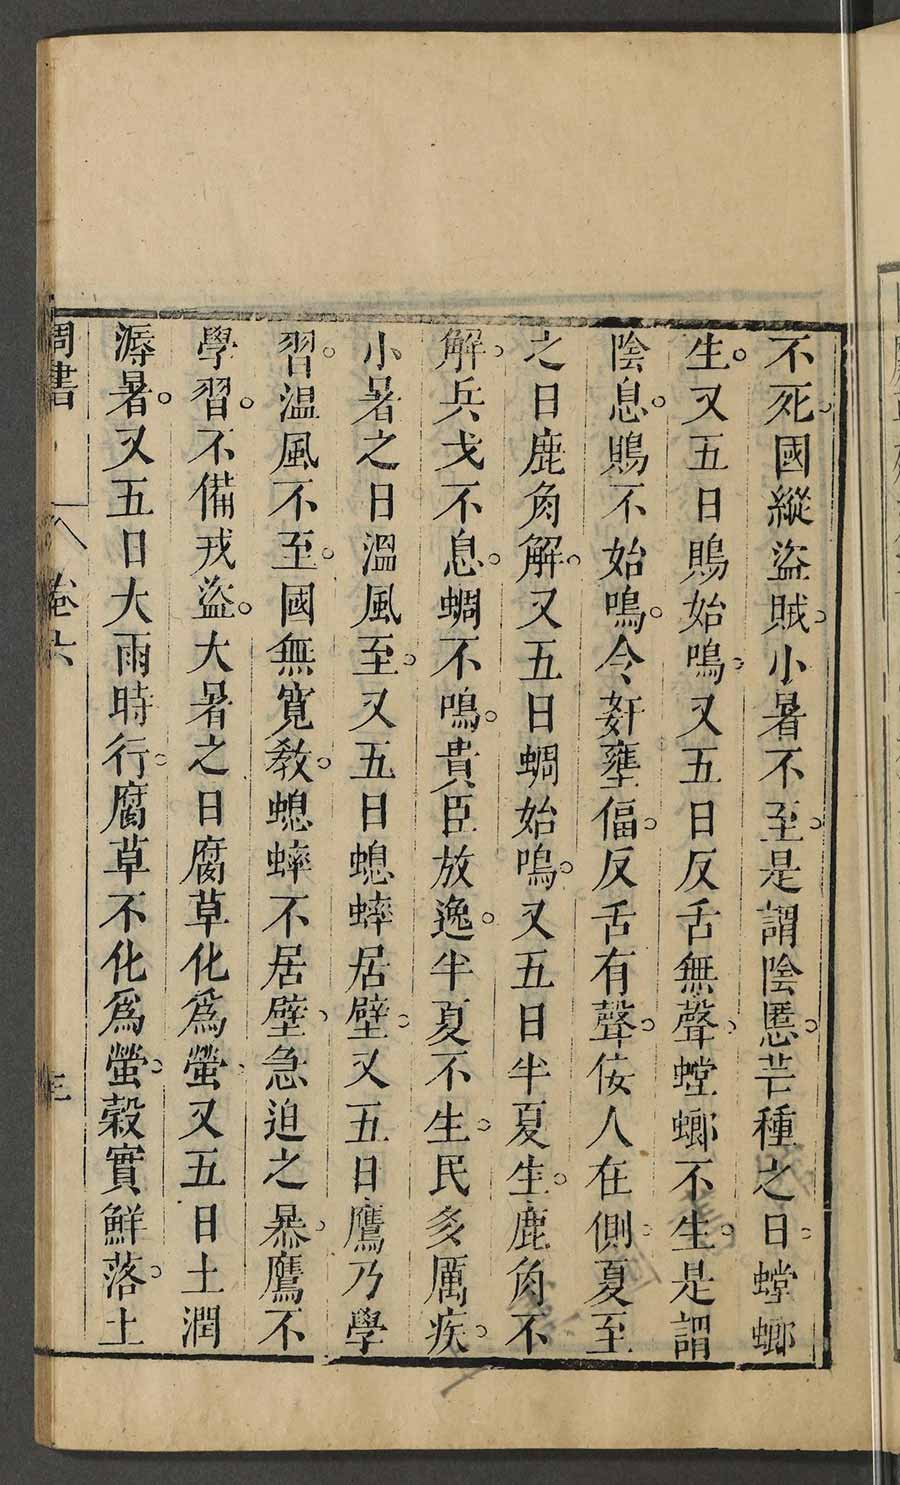 不死國縱盜賊小暑不至是謂陰慝芒種之日螳螂
生又五日鵙始鳴又五日反舌無聲螳螂不生是謂
陰息鵙不始鳴令姧壅偪反舌有聲佞人在側夏至
之日鹿角解又五日蜩始鳴又五日半夏生鹿角不
解兵戈不息蜩不鳴貴臣放逸半夏不生民多厲疾
小暑之日溫風至又五日蟋蟀居壁又五日鷹乃學
習溫風不至國無寬教蟋蟀不居壁急迫之暴鷹不
學習不備戎盜大暑之日腐草化爲螢又五日土潤
溽暑又五日大雨時行腐草不化爲螢穀實鮮落土
周書 卷六 三